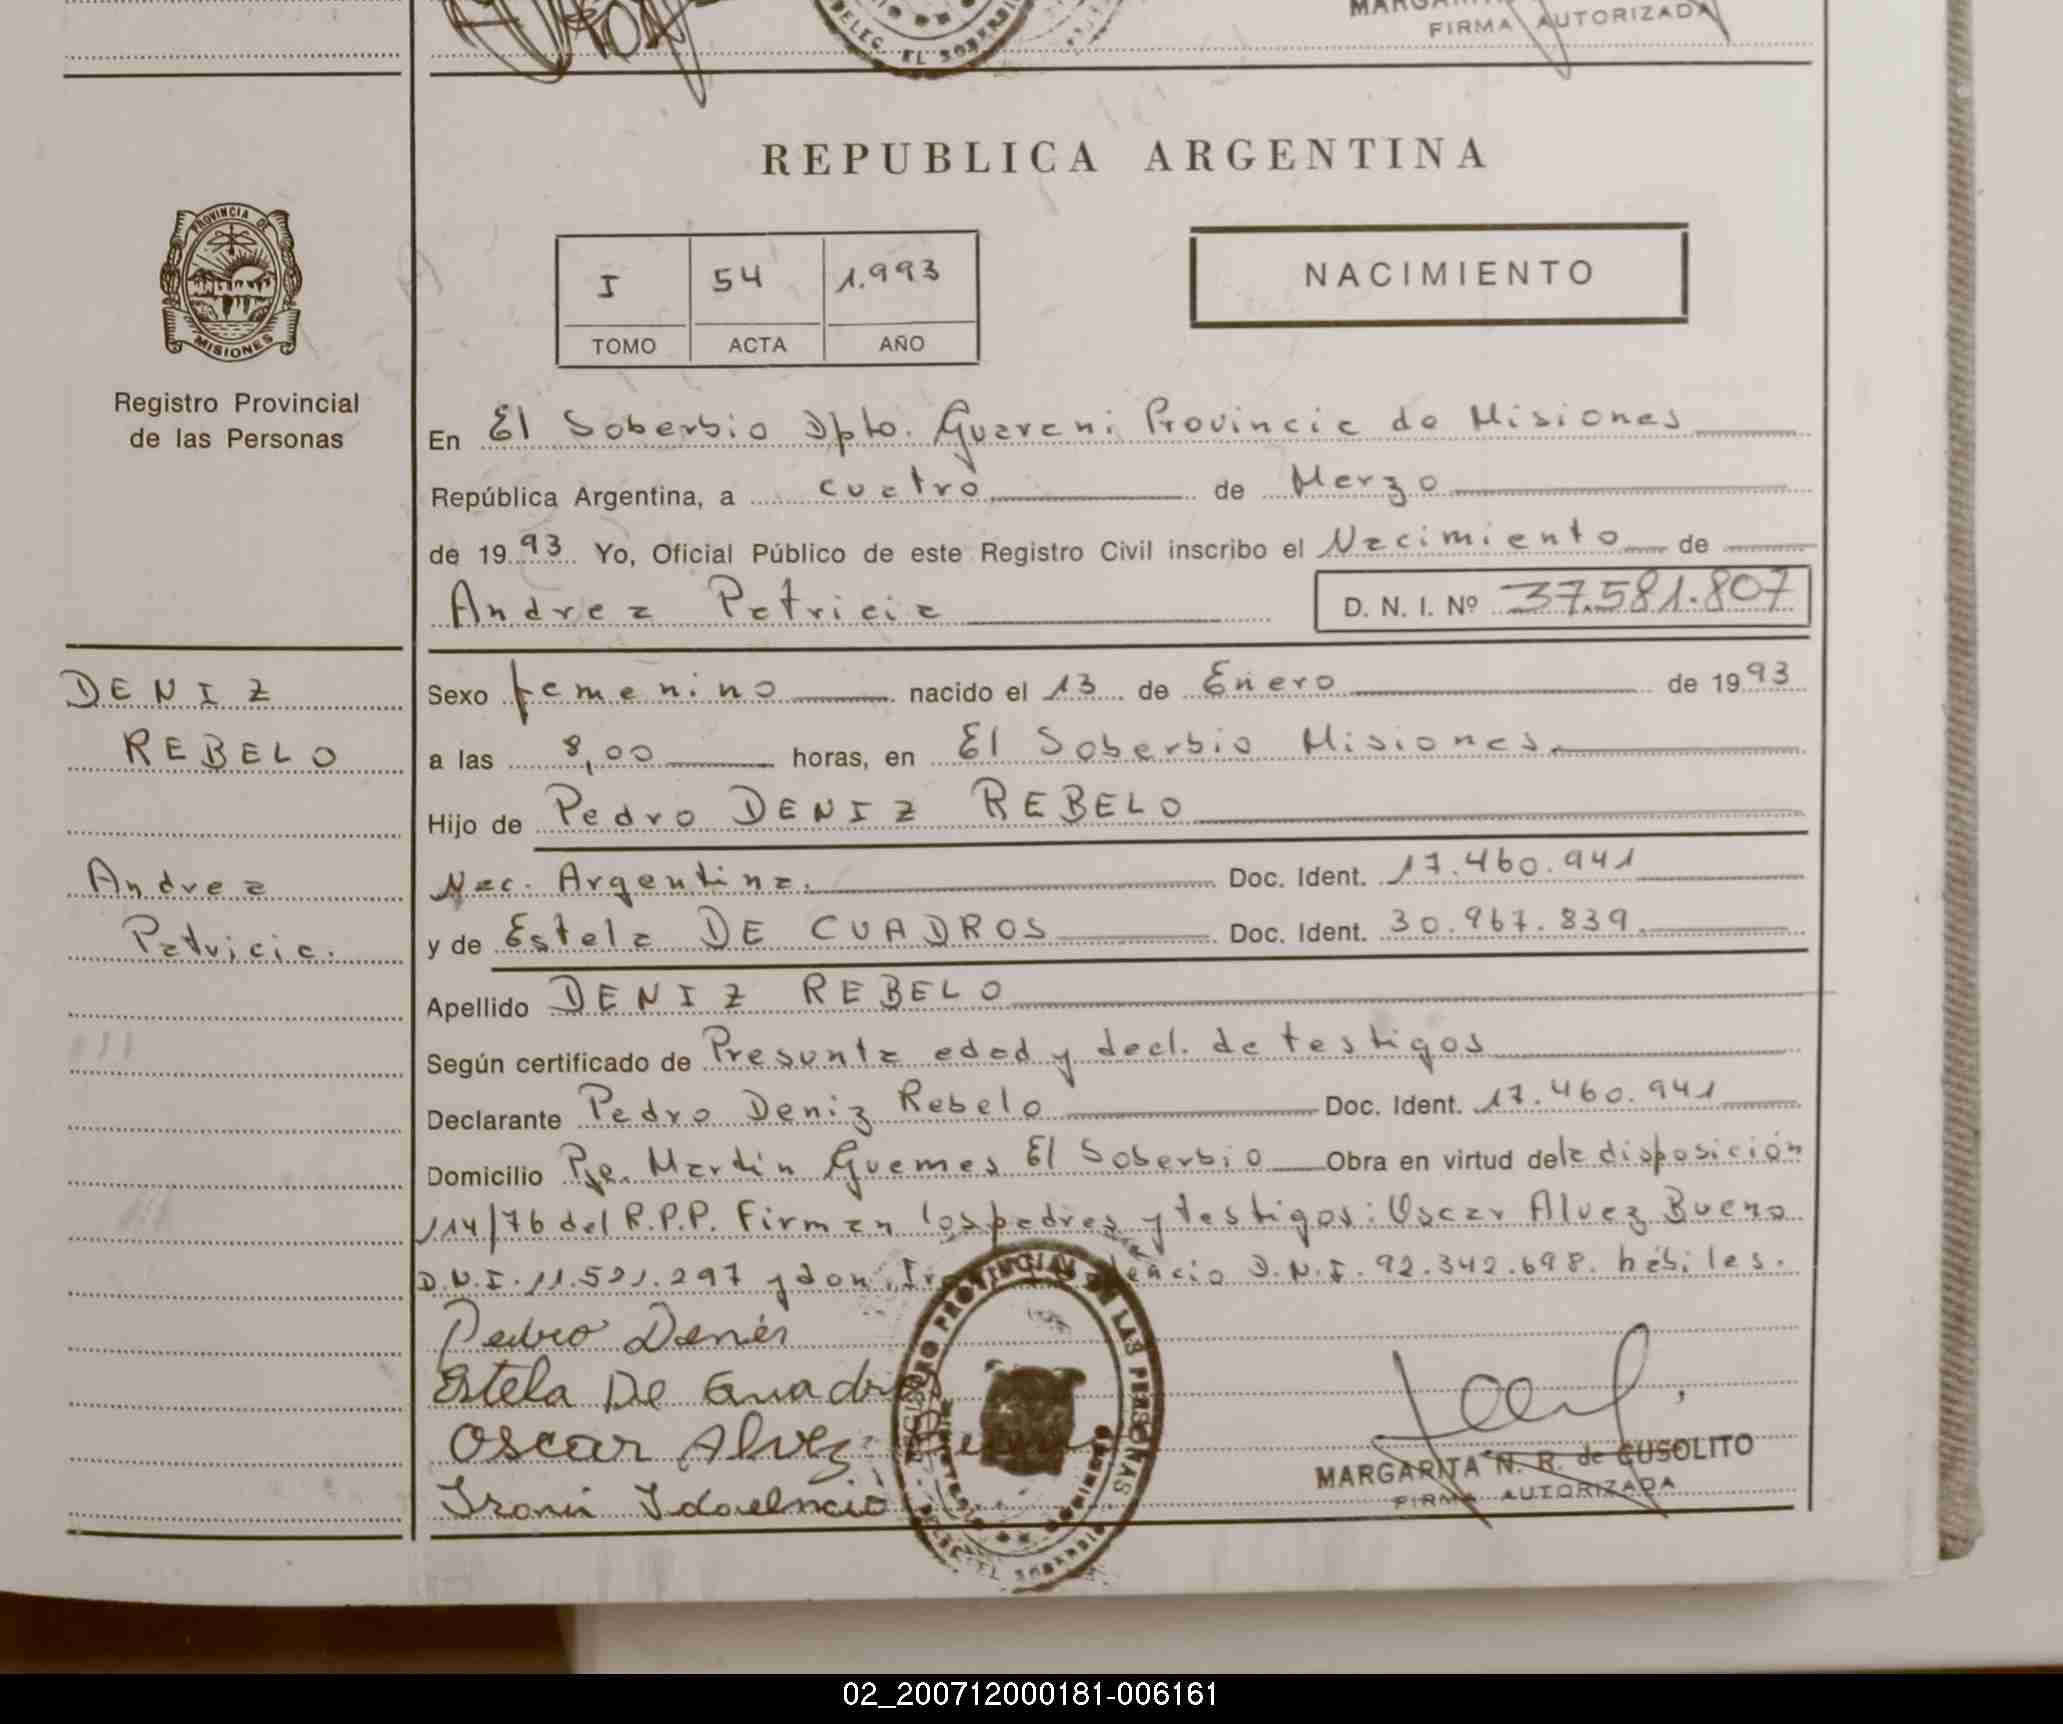 DELEG. EL SOBERBIO
FIRMA AUTORIZADA
REPUBLICA ARGENTINA
PROVINCIA DE
MISIONES
Registro Provincial
de las Personas
I 54 1.993
TOMO ACTA AÑO
NACIMIENTO
En El Soberbio Dpto. Guarani Provincia de Misiones
República Argentina, a cuatro de Marzo
de 1993 Yo, Oficial Público de este Registro Civil inscribo el Nacimiento de
Andrea Patricia D. N. I. Nº 37.581.807
DENIZ
REBELO
Andrea
Patricia.
Sexo femenino nacido el 13 de Enero de 1993
a las 8,00 horas, en El Soberbio Misiones.
Hijo de Pedro DENIZ REBELO
Nac. Argentina. Doc. Ident. 17.460.941
y de Estela DE CUADROS Doc. Ident. 30.967.839.
Apellido DENIZ REBELO
Según certificado de Presunta edad y decl. de testigos
Declarante Pedro Deniz Rebelo Doc. Ident. 17.460.941
Domicilio Pje. Martín Guemes El Soberbio Obra en virtud de la disposición
114/76 del R.P.P. Firman los padres y testigos: Oscar Alvez Bueno
D.N.I. 11.521.297 y don D.N.I. 92.342.698. hábiles.
Pedro Denis
Estela De Cuadros
Oscar Alvez
REGISTRO PROVINCIAL DE LAS PERSONAS
MISIONES
DELEG. EL SOBERBIO
MARGARITA N. R. de CUSOLITO
FIRMA AUTORIZADA
02_200712000181-006161